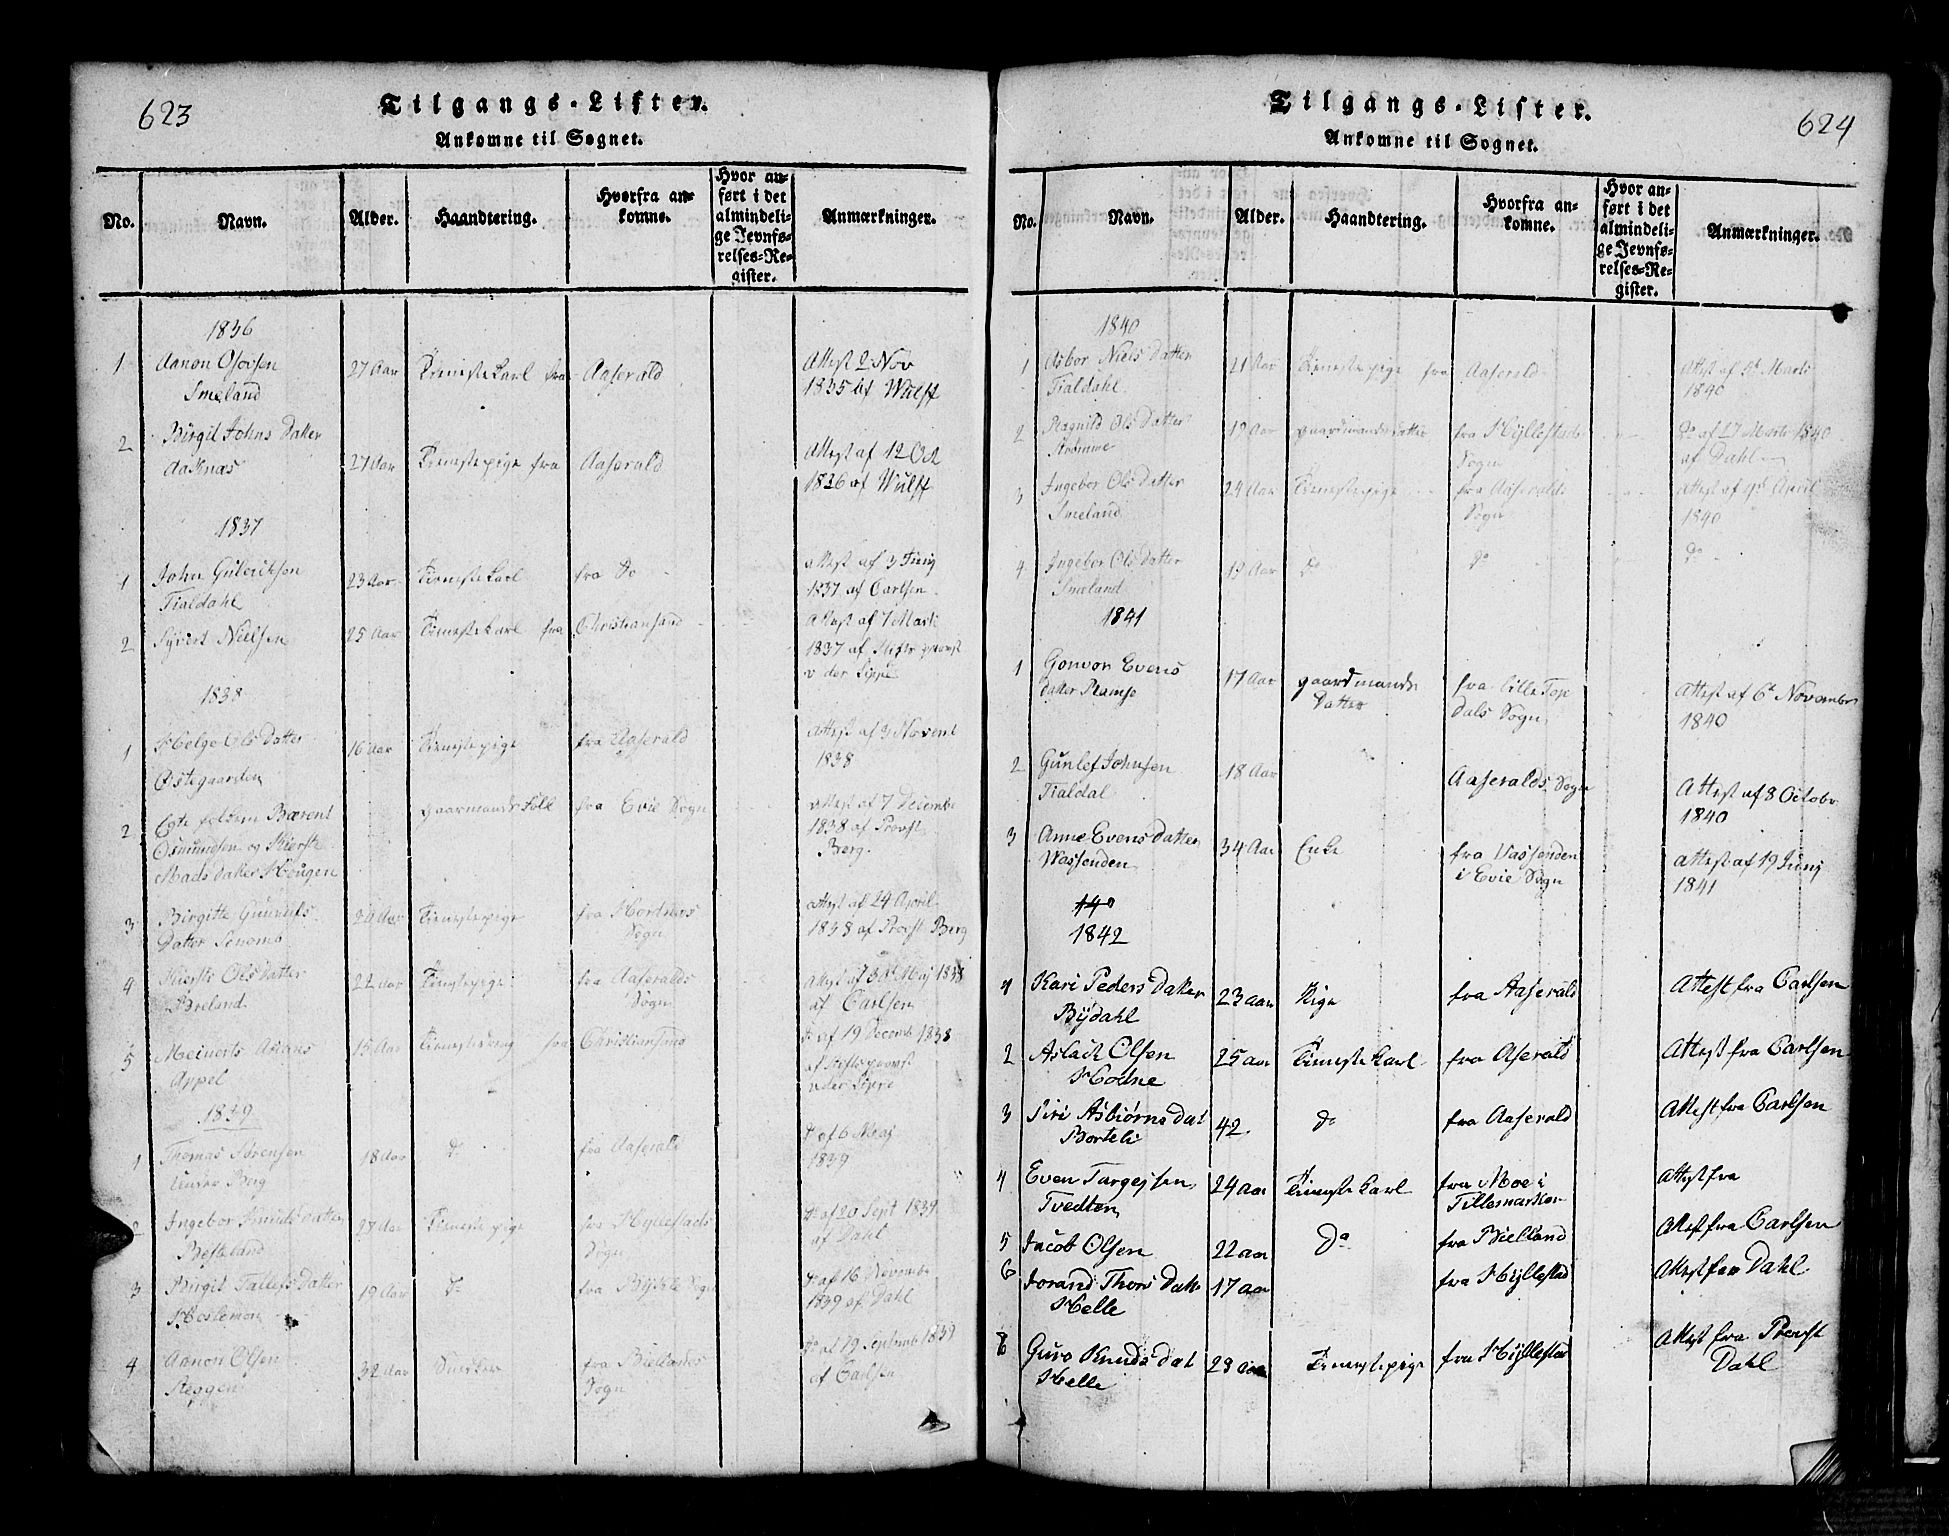 623
Tilgangs-Lister.
Ankomne til Sognet.
No. Navn. Alder. Haandtering. Hvorfra an-komne. Hvor an-ført i det almindeli-ge Jevnfø-relses-Re-gister. Anmærkninger.
1836
1 Aanon Olsen 27 Aar Tienestekarl fra Aaserald Attest 2 Nov
Smeland 1835 af Wulff
2 Birgit Johns Datter
Aaknæs 27 Aar Tienestepige fra Aaserald Attest af 12 Oct
1836 af Wulff
1837
1 John Guleriksen 23 Aar Tienestekarl fra Do attest af 3 Juny
Tialdahl 1837 af Carlsen
2 Syvert Nielsen 25 Aar Tienestekarl fra Christiansand Attest af 7 Marti
1837 af Stifts provst
v der Lippe
1838
1 Helge Ols Datter 16 Aar Tienestepige fra Aaserald Attest af 3 Novemb
Østegaarden 1838
2 Egte folkene Bærent gaarmands Folk fra Evie Sogn attest af 7 Decembr
Osmundsen og Kierste 1838 af Provst
Mads Datter Hougen Berg.
3 Birgitte Gunnufs 20 Aar Tienestepige fra Hortnæs attest af 24 April
Datter Senumb Sogn 1838 af Provst Berg
4 Kierste Ols Datter 22 Aar Tienestepige fra Aaseralds Attest af 30t Maj 1838
Breland Sogn af Carlsen
5 Meinerts Adams 15 Aar fra Christiansand do af 19 Decemb 1838
Appel af Stifts provst
v der Lippe
1839
1 Thomas Sørensen 18 Aar do fra Aaserald do af 6 Maj
Under Berg 1839
2 Ingebor Knuds Datter 27 Aar Tieneste pige fra Hyllestads do af 20 Sept 1839
Besteland Sogn af Dahl
3 Birgit Tallefs Datter 19 Aar do fra Bykle Sogn do af 16 Novembr
Hoslemon 1839 af Dahl
4 Aanon Olsen 32 Aar fra Biellands do af 19 Septemb 1839
Steggen Sogn af Carlsen
624
Tilgangs-Lister.
Ankomne til Sognet.
No. Navn. Alder. Haandtering. Hvorfra an-komne. Hvor an-ført i det almindeli-ge Jevnfø-relses-Re-gister. Anmærkninger.
1840
1 Asbor Niels Datter 21 Aar Tienestepige fra Aaserald Attest af 5t Marts
Tialdahl 1840
2 Ragnild Ols Datter 19 Aar gaardmands datter fra Hyllestads do af 17 Marts 1840
Strømme Sogn af Dahl
3 Ingebor Ols Datter 24 Aar Tienestepige fra Aaseralds attest af April
Smeland Sogn 1840
4 Ingebor Ols Datter 19 Aar do do do
Smeland
1841
1 Gonvor Evens 17 Aar gaardmands fra Lille Top Attest af 6t Novembr
datter Ramse Datter dals Sogn 1840
2 Gunlef Johnsen 18 Aar Aaseralds Sogn Attest af 8 Octobr
Tialdal 1840
3 Anne Evens Datter 34 Aar Enke fra Vassenden attest af 19 Juny
Wassenden i Evie Sogn 1841
140
1842
1 Kari Peders Datter 23 aar Pige fra Aaserald Attest fra Carlsen
Bydahl
2 Aslack Olsen 25 aar Tieneste Karl fra Aserald Attest fra Carlsen
Hodne
3 Siri Asbiørns dat 42 do fra Aaserald Attest fra Carlsen
Borteli
4 Even Targejsen 24 aar Tieneste karl fra Moe i Attest fra
Tvedten Tillemarken
5 Jacob Olsen 22 aar Do fra Bielland Attest fra Carlsen
6 Jorand Thors Datt 17 aar fra Hyllestad Attest fra Dahl
Helle
Guro Knuds dat 23 aar Tienestepige fra Hyllestad Attest fra Provst
Helle Dahl